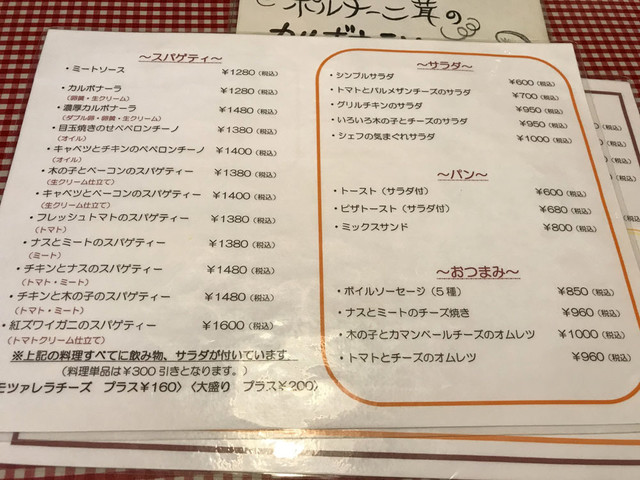 ポルチーニ茸の
カルボナーラ
～スパゲティ～
・ミートソース ¥1280(税込)
・カルボナーラ ¥1280(税込)
(卵黄・生クリーム)
・濃厚カルボナーラ ¥1480(税込)
(ダブル卵・卵黄・生クリーム)
・目玉焼きのせペペロンチーノ ¥1380(税込)
(オイル)
・キャベツとチキンのペペロンチーノ ¥1400(税込)
(オイル)
・木の子とベーコンのスパゲティー ¥1380(税込)
(生クリーム仕立て)
・キャベツとベーコンのスパゲティー ¥1400(税込)
(生クリーム仕立て)
・フレッシュトマトのスパゲティー ¥1380(税込)
(トマト)
・ナスとミートのスパゲティー ¥1380(税込)
(ミート)
・チキンとナスのスパゲティー ¥1480(税込)
(トマト・ミート)
・チキンと木の子のスパゲティー ¥1480(税込)
(トマト・ミート)
・紅ズワイガニのスパゲティー ¥1600(税込)
(トマトクリーム仕立て)
※上記の料理すべてに飲み物、サラダが付いています。
(料理単品は¥300引きとなります。)
モツァレラチーズ プラス¥160〉〈大盛り プラス¥200〉
～サラダ～
・シンプルサラダ ¥600(税込)
・トマトとパルメザンチーズのサラダ ¥700(税込)
・グリルチキンのサラダ ¥950(税込)
・いろいろ木の子とチーズのサラダ ¥950(税込)
・シェフの気まぐれサラダ ¥1000(税込)
～パン～
・トースト(サラダ付) ¥600(税込)
・ピザトースト(サラダ付) ¥680(税込)
・ミックスサンド ¥800(税込)
～おつまみ～
・ボイルソーセージ(5種) ¥850(税込)
・ナスとミートのチーズ焼き ¥960(税込)
・木の子とカマンベールチーズのオムレツ ¥1000(税込)
・トマトとチーズのオムレツ ¥960(税込)